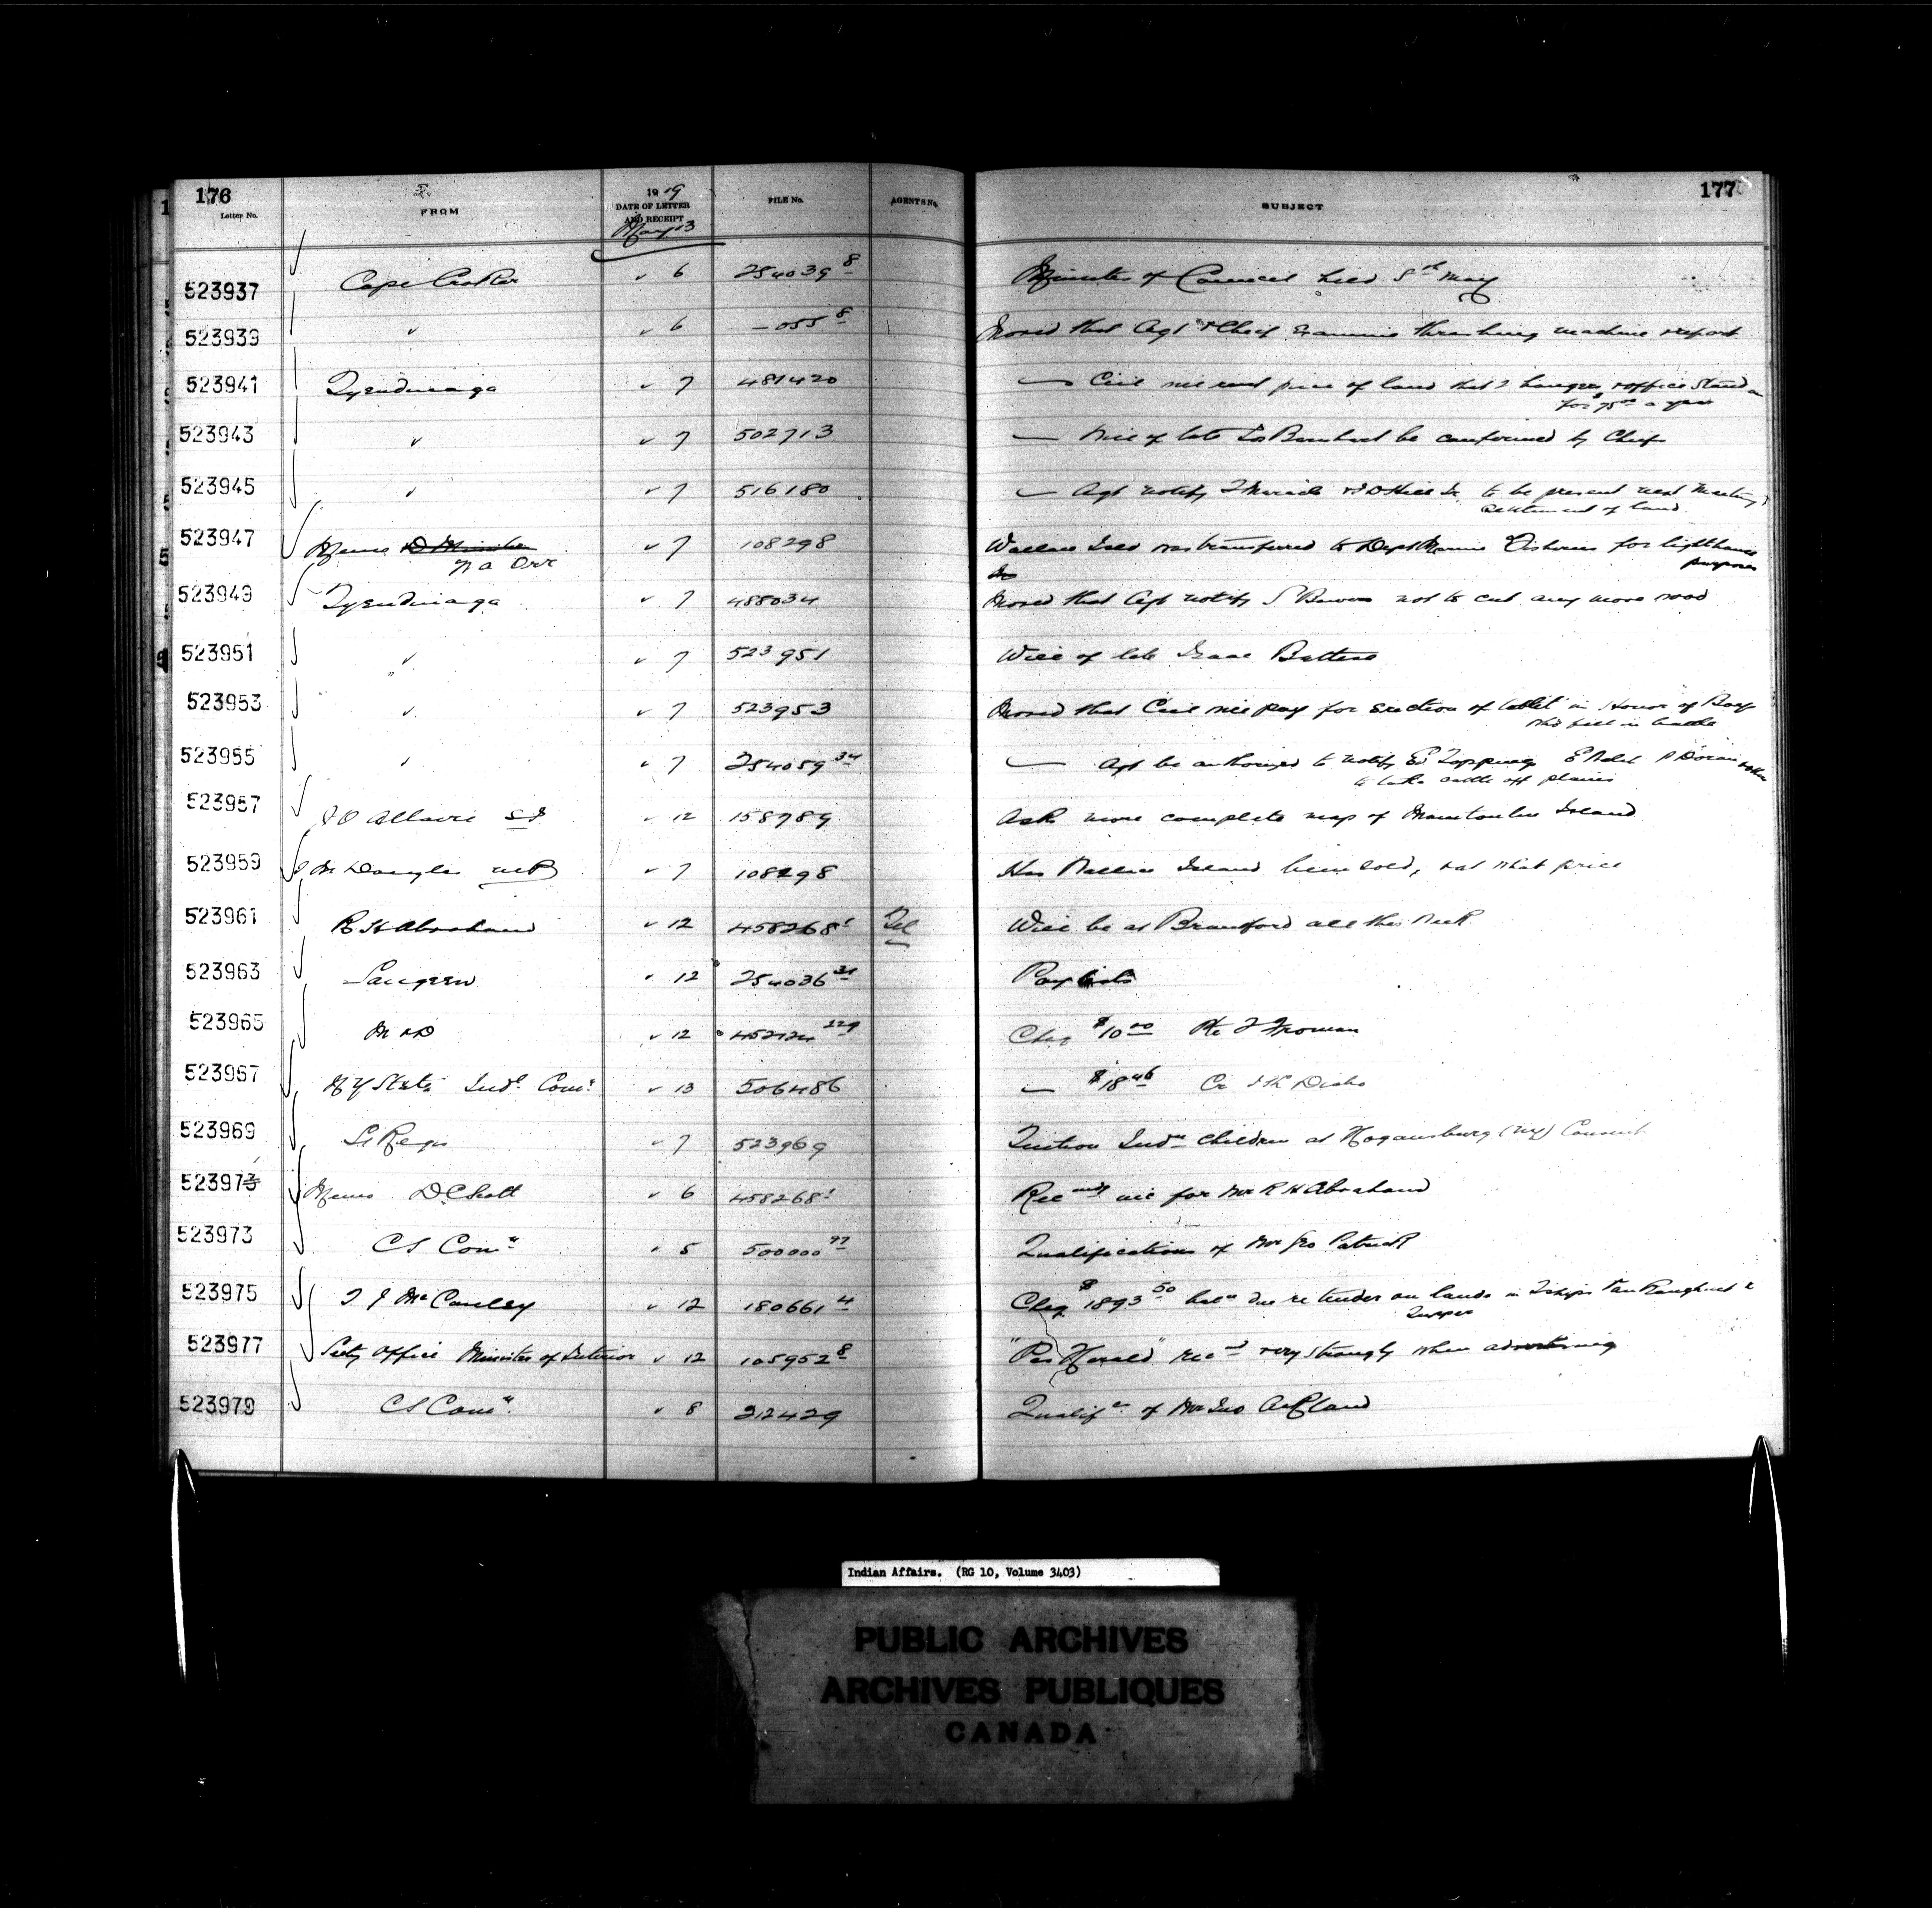 176
177
Letter No.
FROM
1919
DATE OF LETTER
AND RECEIPT
May 13
FILE No.
AGENTS No.
SUBJECT
523937 Cape Croker " 6 254039 8 Minutes of Council held 5th May
523939 " " 6 —055 8 Moved that Agt & Chief examine thrashing machine & report
523941 Tyendinaga " 7 481420 — Ccil rent piece of land that 2 hangers & office stand on
for $75.00 a year
523943 " " 7 502713 — Will of late Barnhart be confirmed by Chief
523945 " " 7 516180 — Agt notify & Hill Sr to be present next meeting
settlement of land
523947 Memo
N A Orr " 7 108298 Wallace Isld was transferred to Dept Marine Fisheries for lighthouse
purposes
523949 Tyendinaga " 7 488034 Moved that Agt notify S not to cut any more wood
523951 " " 7 523951 Will of late Isaac
523953 " " 7 523953 Moved that Ccil pay for erection of tablet in Honor of Boys
who fell in battle
523955 " " 7 254059 34 — Agt be authorized to notify Ed Topping Doran
to take cattle off plains
523957 J O Allaire " 12 158789 Ask more complete map of Manitoulin Island
523959 Douglas MP " 7 108298 Has Wallace Island been sold, & at what price
523961 R H Abraham " 12 458268 1 Tel Will be at Brantford all this week
523963 Saugeen " 12 254036 31 Pay lists
523965 M & D " 12 452124 229 Cheq $10.00 Pte J Froman
523967 N Y State Indn Comn " 13 506486 — $18.46
523969 St Regis " 7 523969 Tuition Indn children at Hogansburg (NY) Convent
523973 Memo D. C Scott " 6 458268 1 Recmdg for Mr R H Abraham
523973 C S Comn " 5 500000 97 Qualifications of Mr Geo Patrick
523975 T J McCauley " 12 180661 4 Cheq $1893.50 baln due re tender on lands in Tships VanKoughnet &
Tupper
523977 Secty Office Minister of Interior " 12 105952 8 "Pas Herald" recmd very strongly when advertising
523979 C S Comn " 8 212429 Qualifn of Mr Jno Ackland
Indian Affairs. (RG 10, Volume 3403)
PUBLIC ARCHIVES
ARCHIVES PUBLIQUES
CANADA